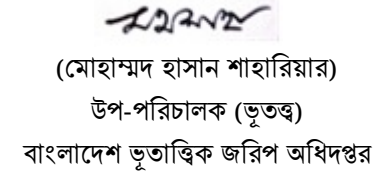 (মোহাম্মদ হাসান শাহারিয়ার)
উপ-পরিচালক (ভূতত্ত্ব)
বাংলাদেশ ভূতাত্ত্বিক জরিপ অধিদপ্তর